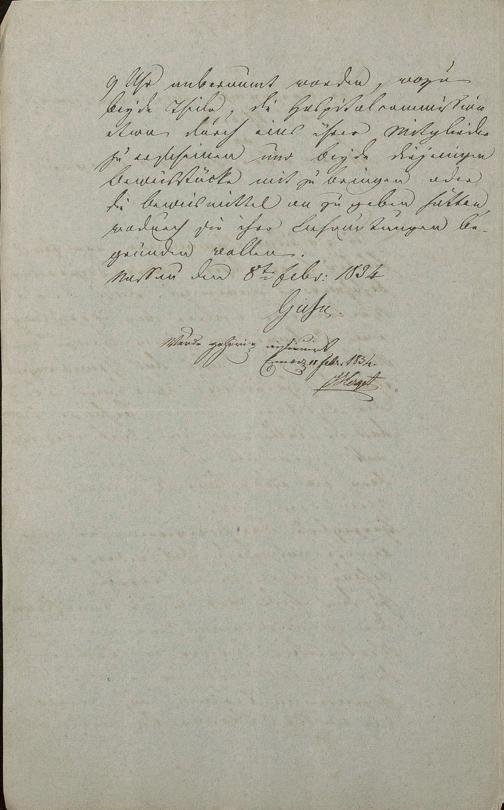 9 Uhr anberaumt worden, wozu
beyde Theile, die Hospitalcommission
etwa durch eins ihrer Mitglieder
zu erscheinen und beyde diejenigen
Beweisstücke mit zu bringen oder
die Beweismittel an zu geben hätten
wodurch sie ihre Behauptungen be-
gründen wollen.
Nassau den 8t Febr: 1834
Werde gehörig
11 Febr. 1834.